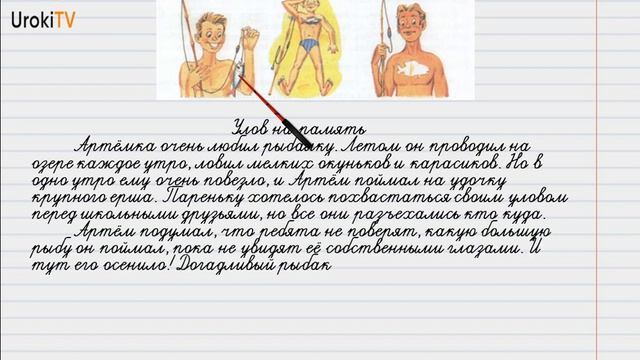 UrokiTV
Улов на память
Артёмка очень любил рыбалку. Летом он проводил на
озере каждое утро, ловил мелких окуньков и карасиков. Но в
одно утро ему очень повезло, и Артём поймал на удочку
крупного ерша. Пареньку хотелось похвастаться своим уловом
перед школьными друзьями, но все они разъехались кто куда.
Артём подумал, что ребята не поверят, какую большую
рыбу он поймал, пока не увидят её собственными глазами. И
тут его осенило! Догадливый рыбак